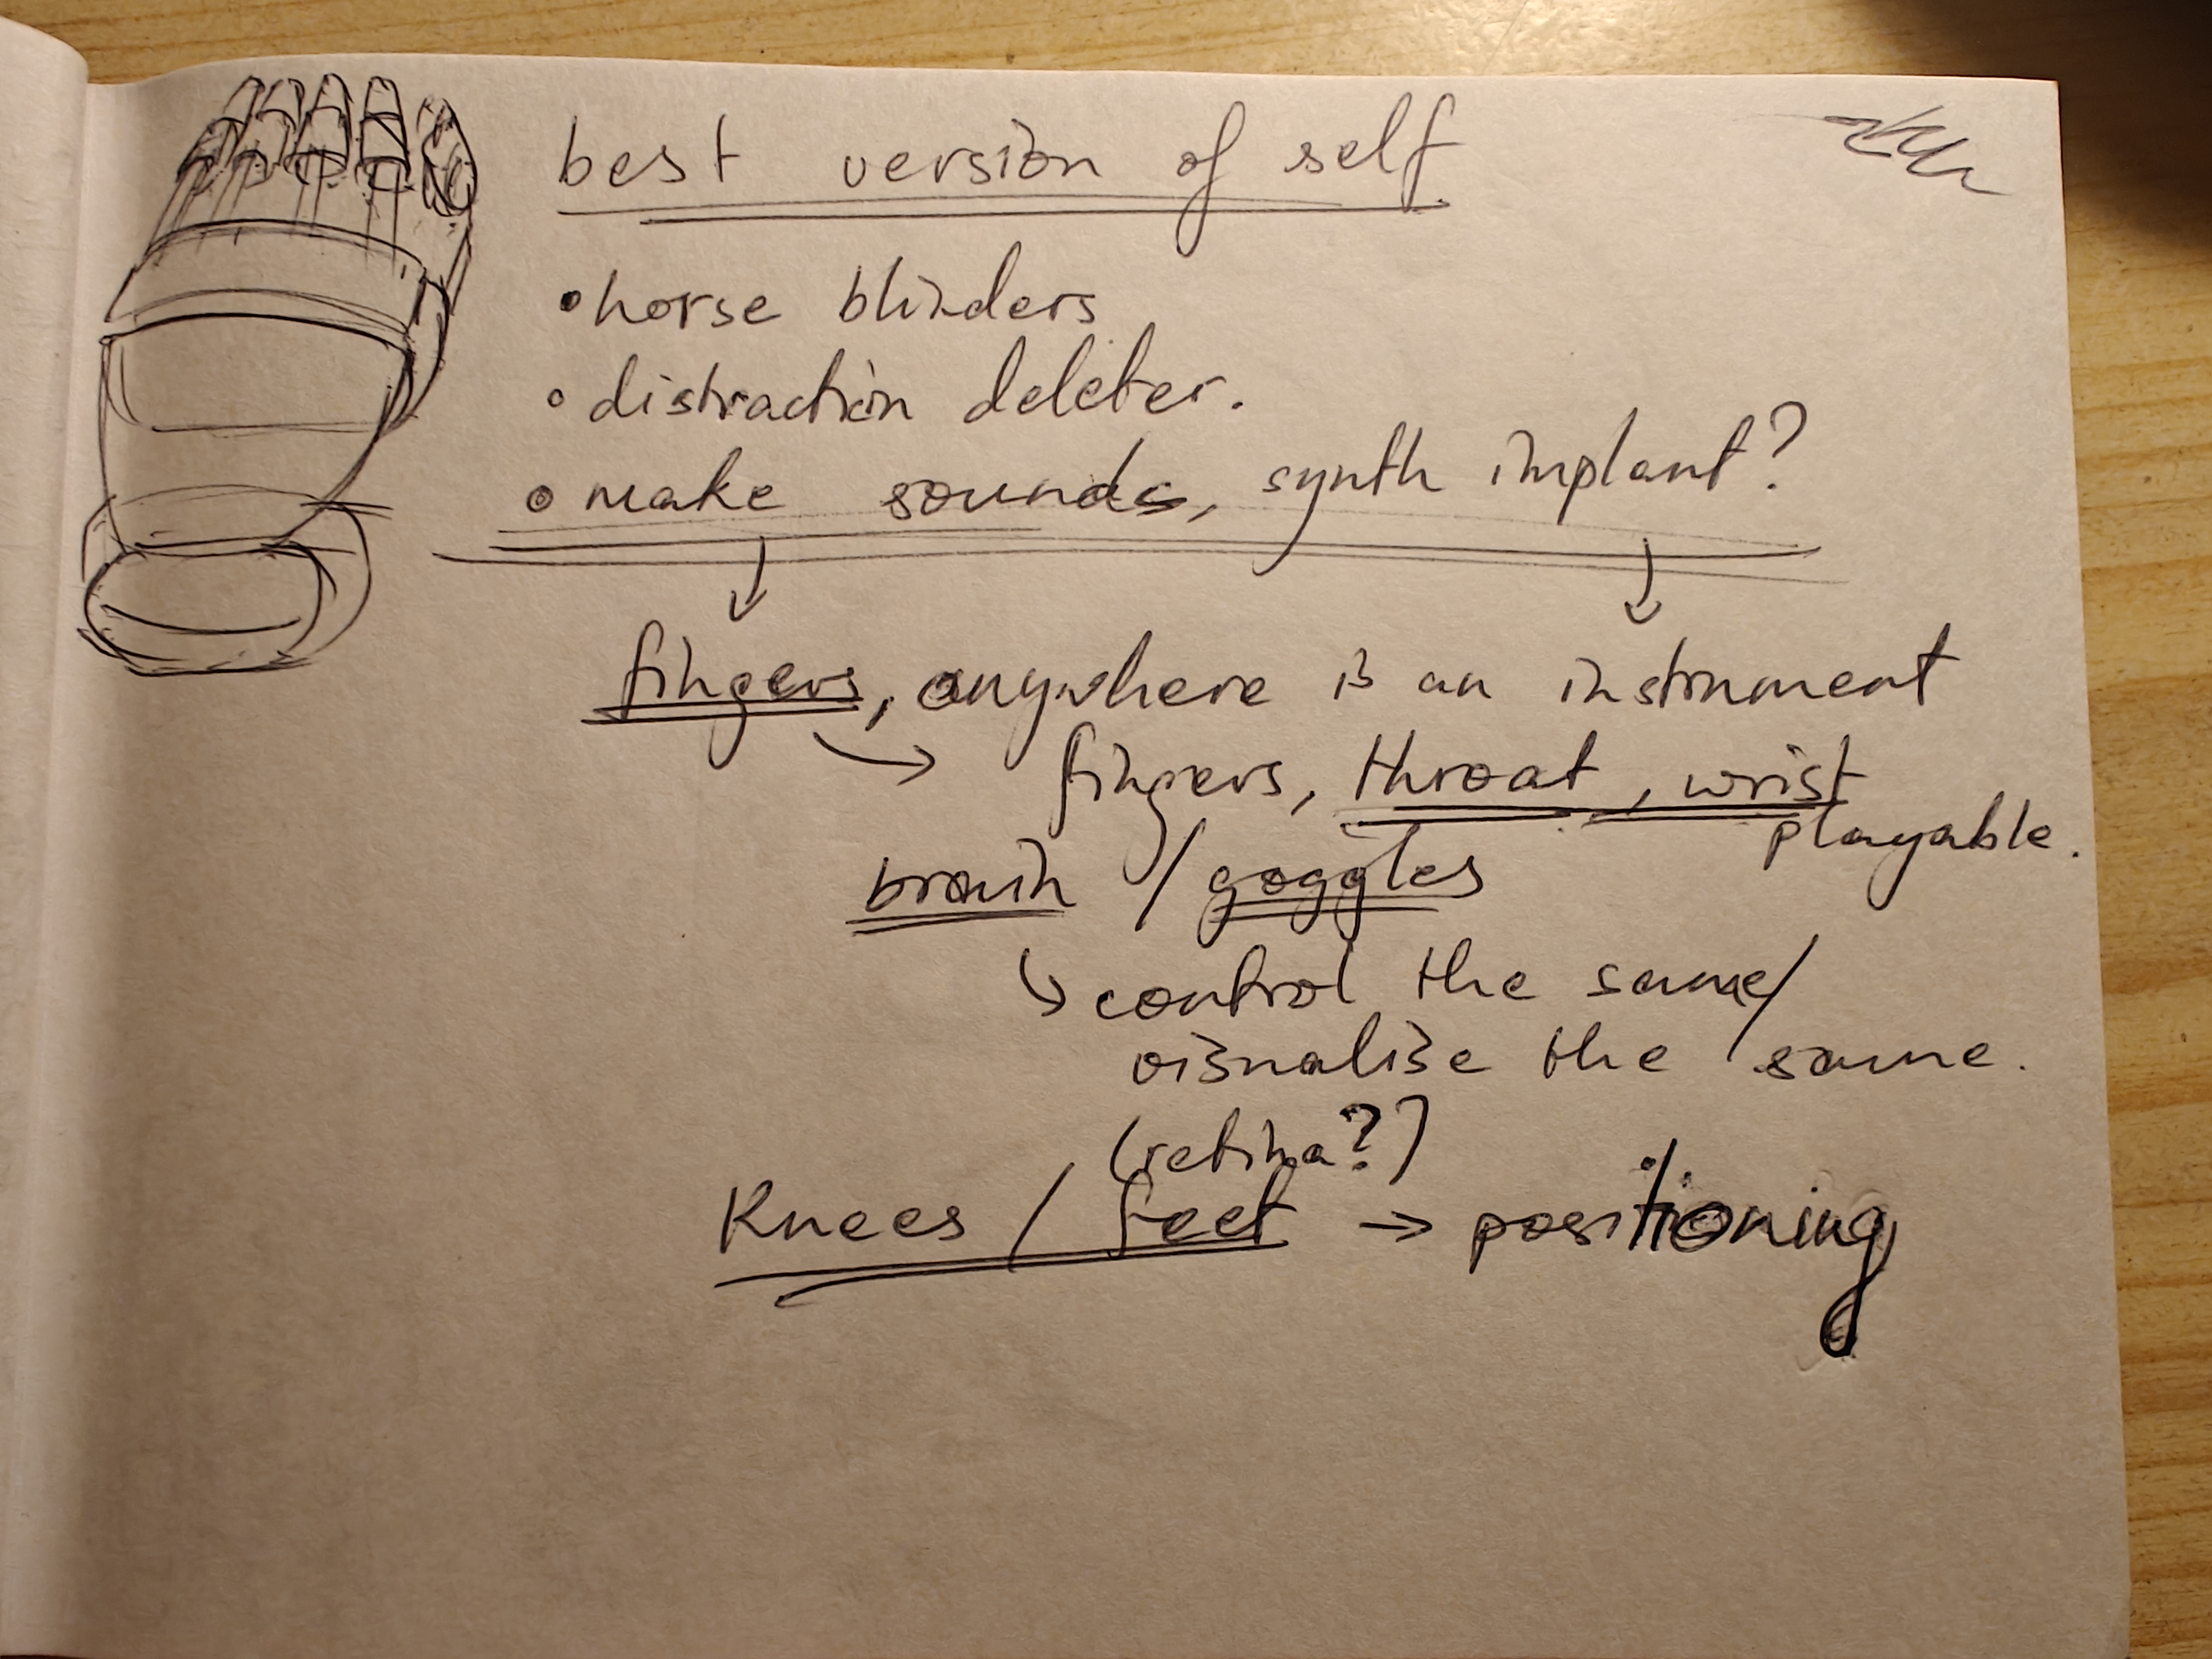 best version of self
• horse blinders
• distraction deleter.
• make sounds, synth implant?
fingers, anywhere is an instrument
→ fingers, throat, wrist
playable.
brain / goggles
↳ control the same/
visualise the same.
(retina?)
Knees / feet → positioning